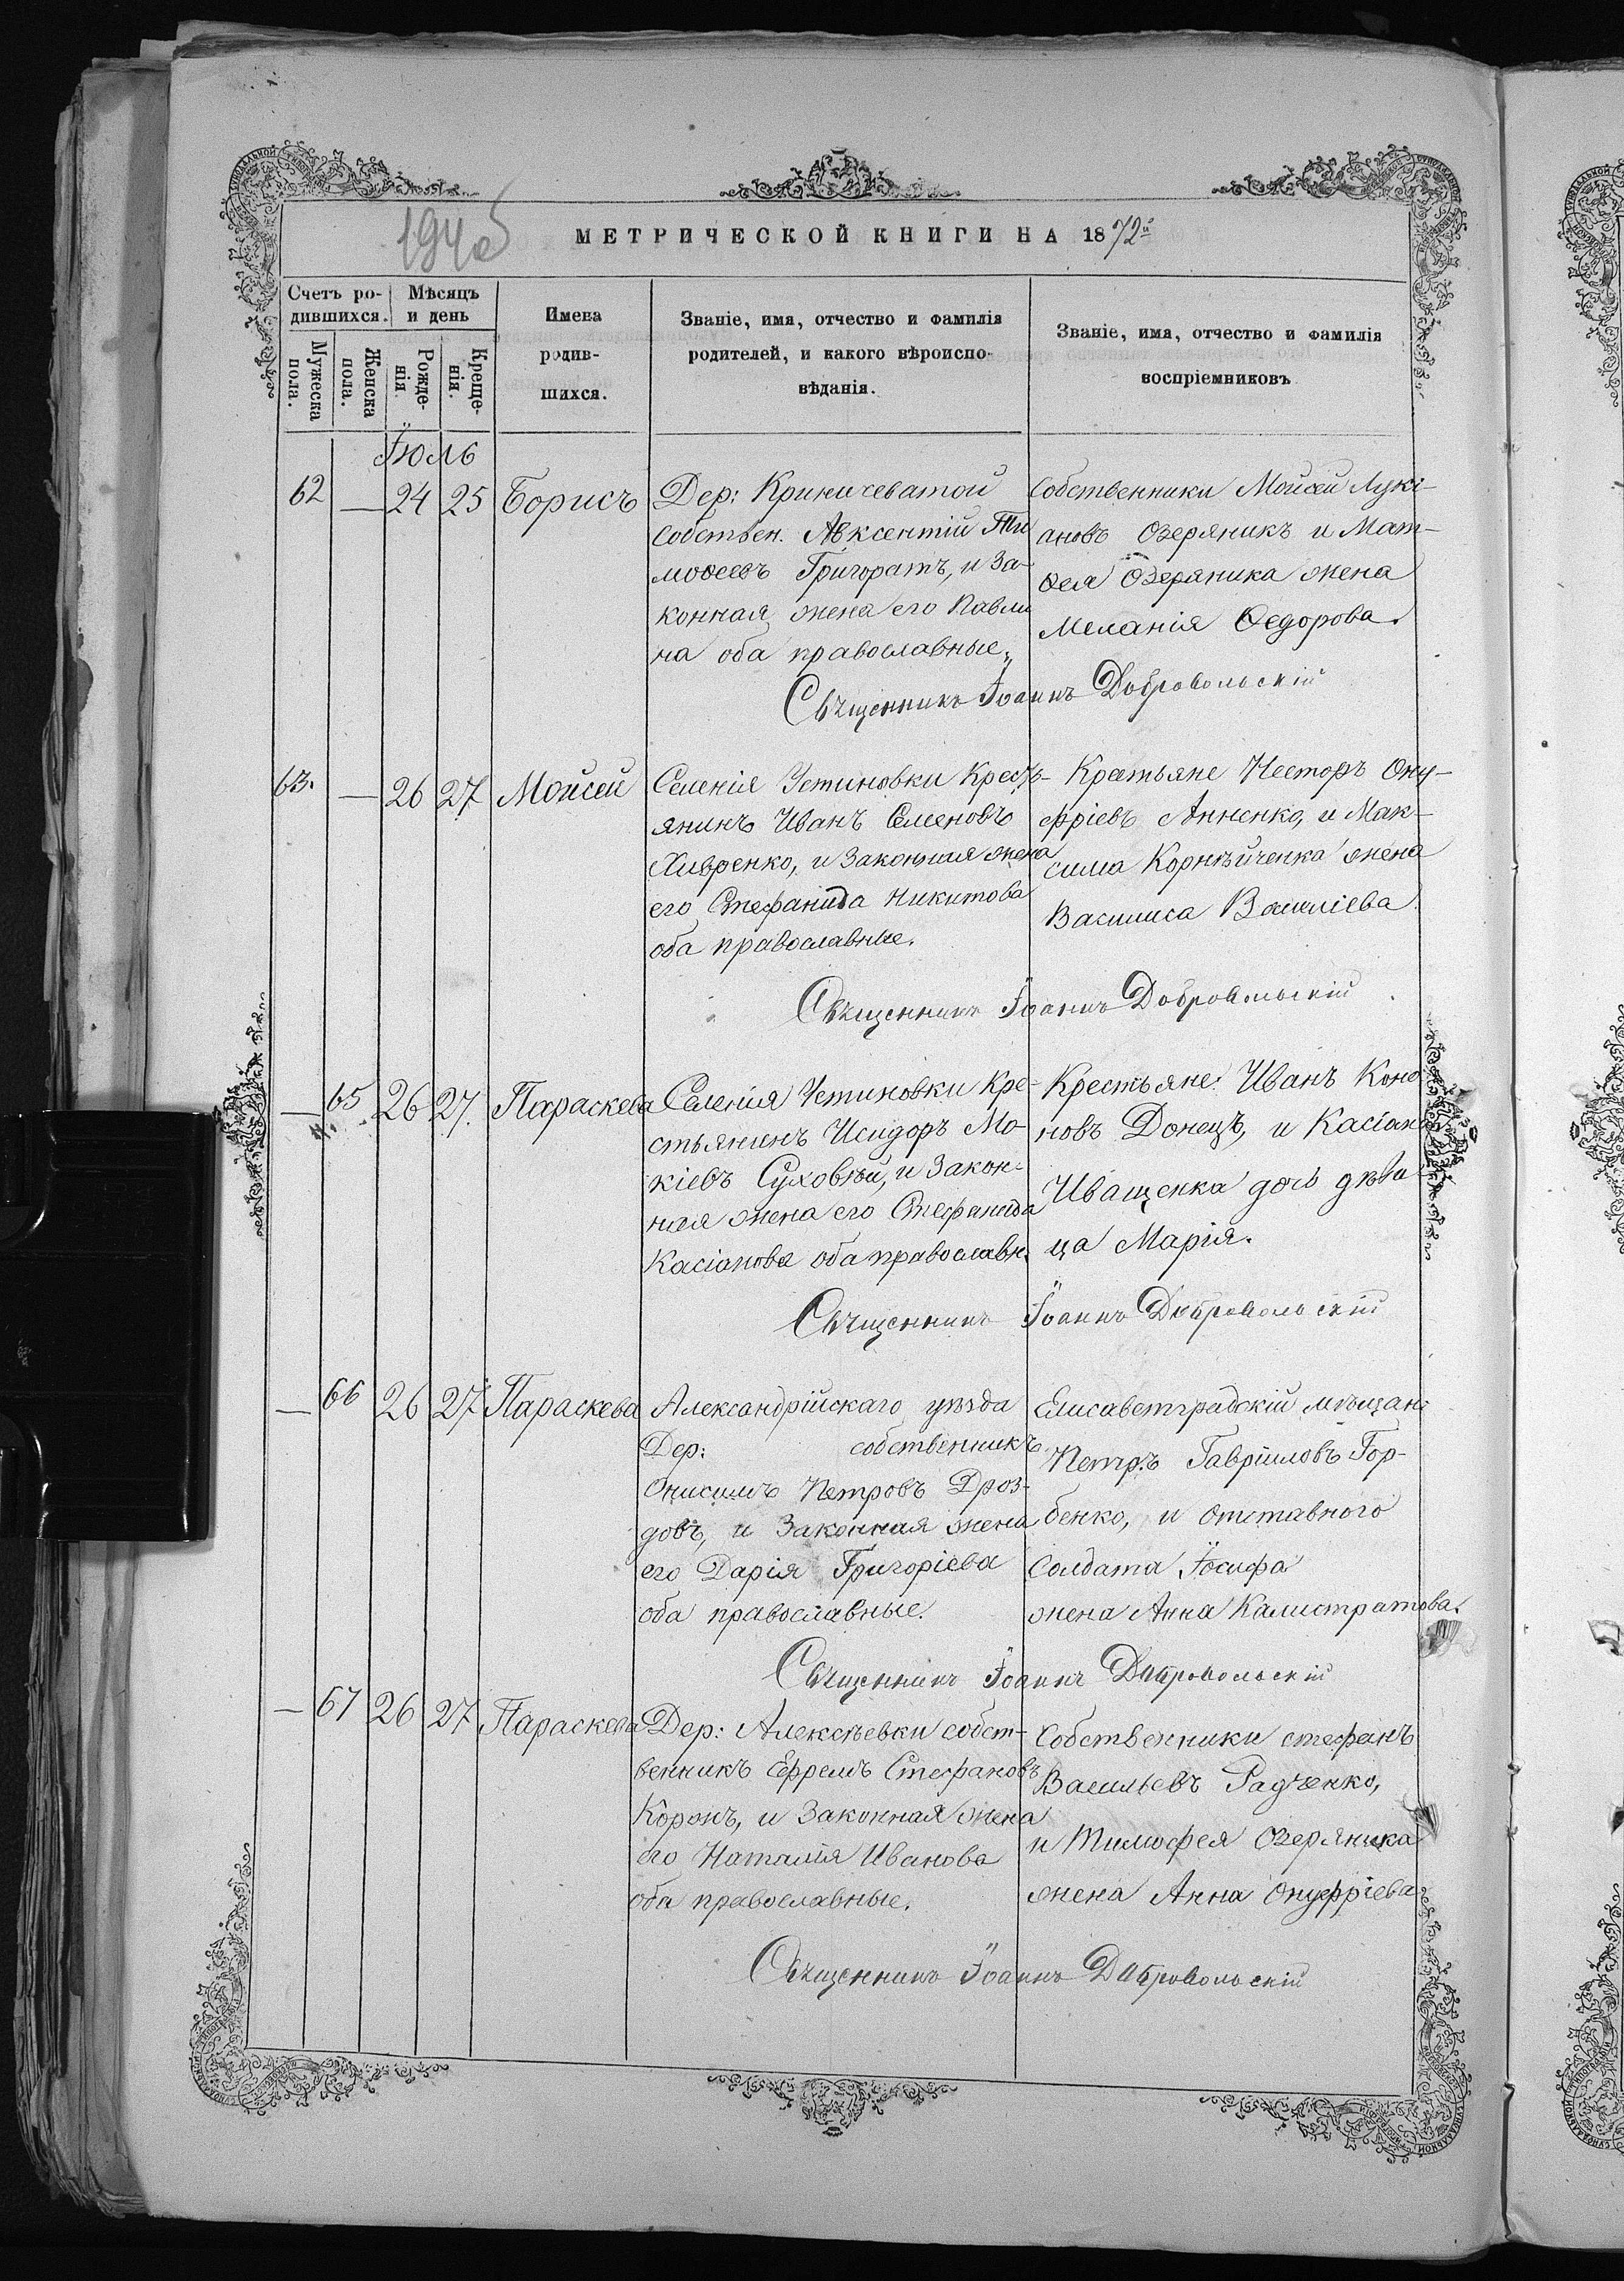 194об
МЕТРИЧЕСКОЙ КНИГИ НА 1872й
Счетъ ро-
дившихся.
Мѣсяцъ
и день
Мужеска
пола.
Женска
пола.
Рожде-
нія.
Креще-
нія.
Имена
родив-
шихся.
Званіе, имя, отчество и фамилія
родителей, и какого вѣроиспо-
вѣданія.
Званіе, имя, отчество и фамилія
воспріемниковъ
Іюль
62 — 24 25 Борисъ
Дер: Криничеватой
собствен. Авксентій Ти
моѳеевъ Григоратъ, и за-
конная жена его Павли
на оба православные.
Собственники Мойсей Лукі-
ановъ Озеряникъ и Мат-
ѳея Озеряника жена
Меланія Ѳедорова.
Священникъ Іоаннъ Добровольскій
63. — 26 27 Мойсей
Селенія Устиновки Кресть-
янинъ Иванъ Семеновъ
Хивренко, и законная жена
его Стефанида Никитова
оба православные.
Крестьяне Несторъ Ону-
фріевъ Анненко, и Мак-
сима Корнѣйченка жена
Василиса Василіева
Священникъ Іоаннъ Добровольскій
— 65 26 27. Параскева
Селенія Устиновки Кре-
стьянинъ Исидоръ Мо-
кіевъ Суховѣй, и закон-
ная жена его Стефанида
Касіанова оба православн.
Крестьяне: Иванъ Коно
новъ Донецъ, и Касіана
Иващенка дочь дѣви-
ца Марія.
Священникъ Іоаннъ Добровольскій
— 66 26 27 Параскева
Александрійскаго уѣзда
Дер: собственникъ
Онисимъ Петровъ Дроз-
довъ, и законная жена
его Дарія Григоріева
оба православные.
Елисаветградскій мѣщани
Петръ Гавріиловъ Гор-
бенко, и отставного
Солдата Іосифа
жена Анна Калистратова.
Священникъ Іоаннъ Добровольскій
— 67 26 27 Параскева
Дер: Алексѣевки собст-
венникъ Ефремъ Стефановъ
Коронъ, и законная жена
его Наталія Иванова
оба православные.
Собственники Стефанъ
Васильевъ Радченко,
и Тимофея Озеряника
жена Анна Онуфріева
Священникъ Іоаннъ Добровольскій